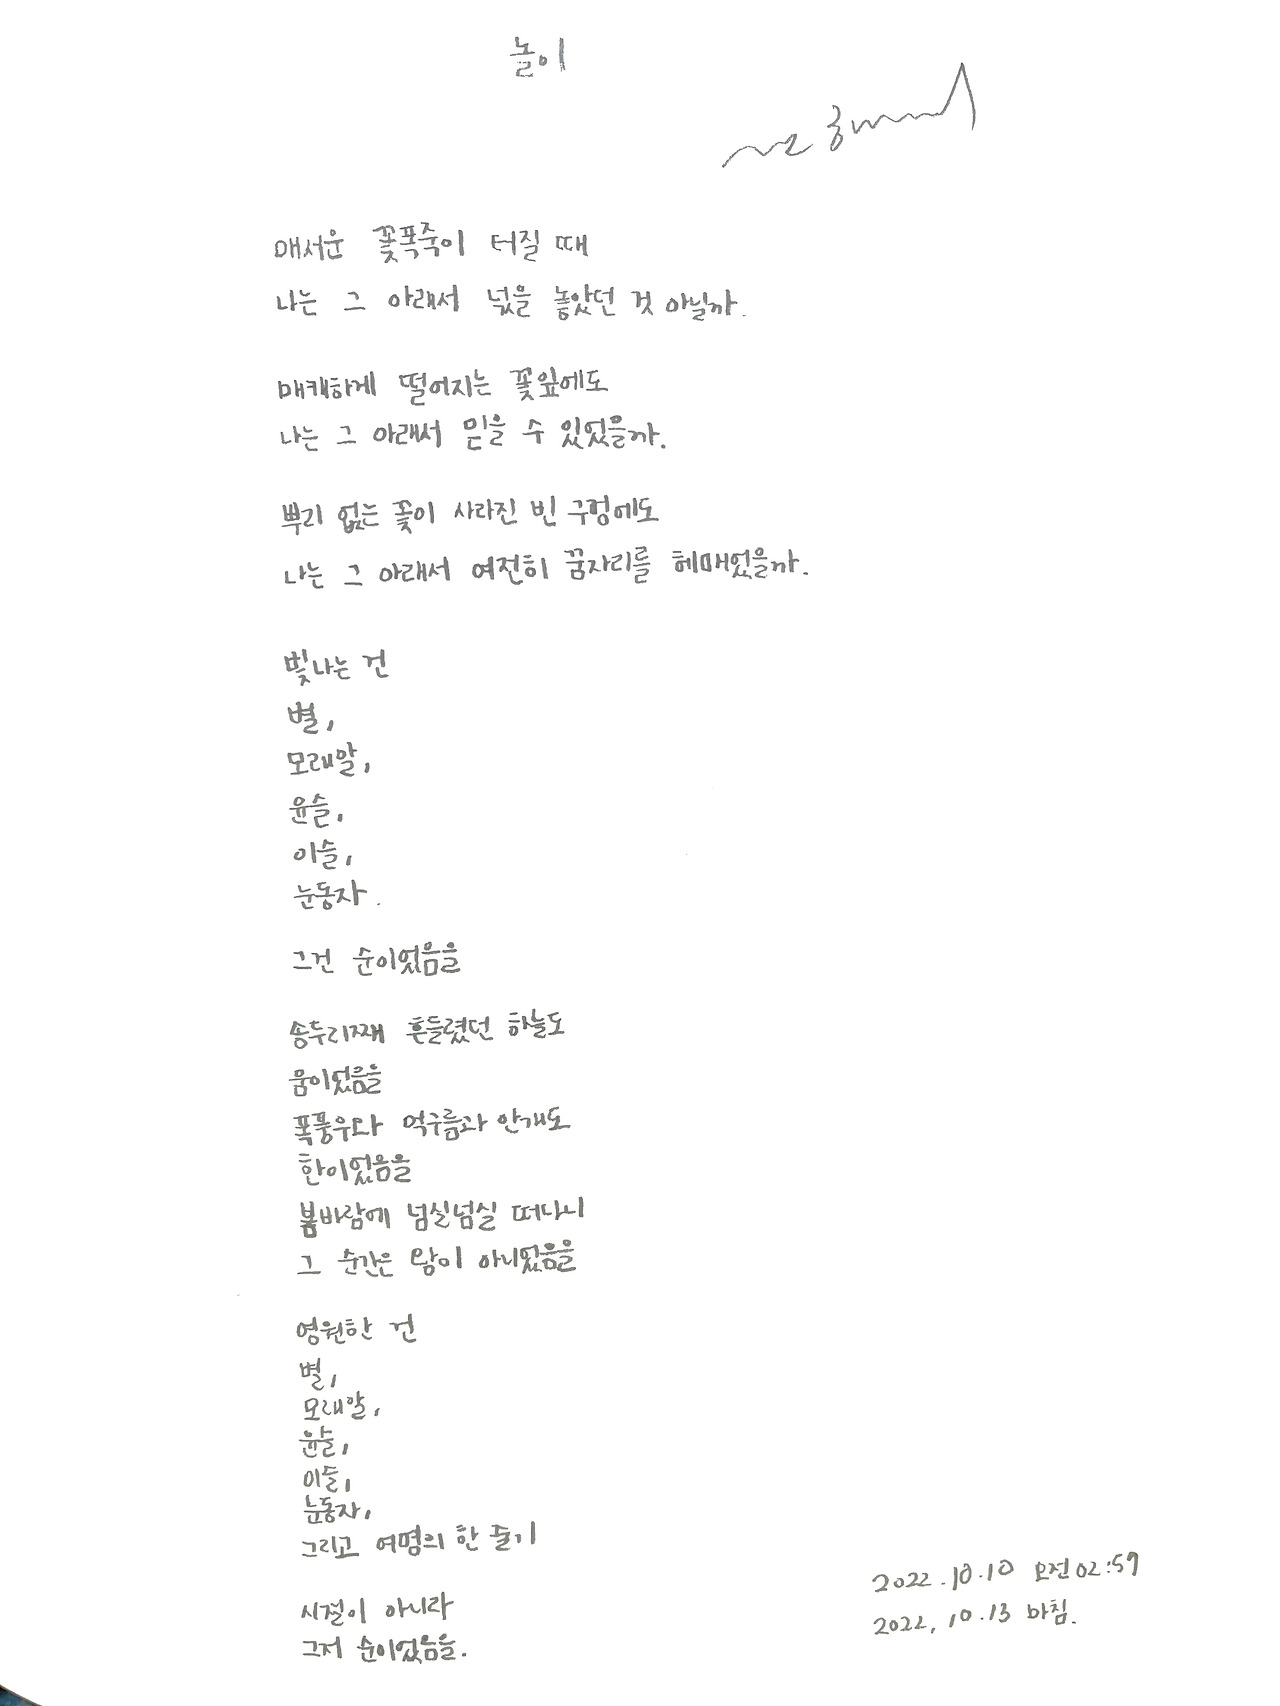 놀이
매서운 꽃폭죽이 터질 때
나는 그 아래서 넋을 놓았던 것 아닐까.
매캐하게 떨어지는 꽃잎에도
나는 그 아래서 믿을 수 있었을까.
뿌리 없는 꽃이 사라진 빈 구멍에도
나는 그 아래서 여전히 꿈자리를 헤매었을까.
빛나는 건
별,
모래알,
윤슬,
이슬,
눈동자.
그건 순이었음을
송두리째 흔들렸던 하늘도
움이었음을
폭풍우와 먹구름과 안개도
한이었음을
봄바람에 넘실넘실 떠나니
그 순간은 왕이 아니었음을
영원한 건
별,
모래알,
윤슬,
이슬,
눈동자,
그리고 여명의 한 줄기
시절이 아니라
그저 순이었음을.
2022.10.10 오전 02:57
2022.10.13 마침.